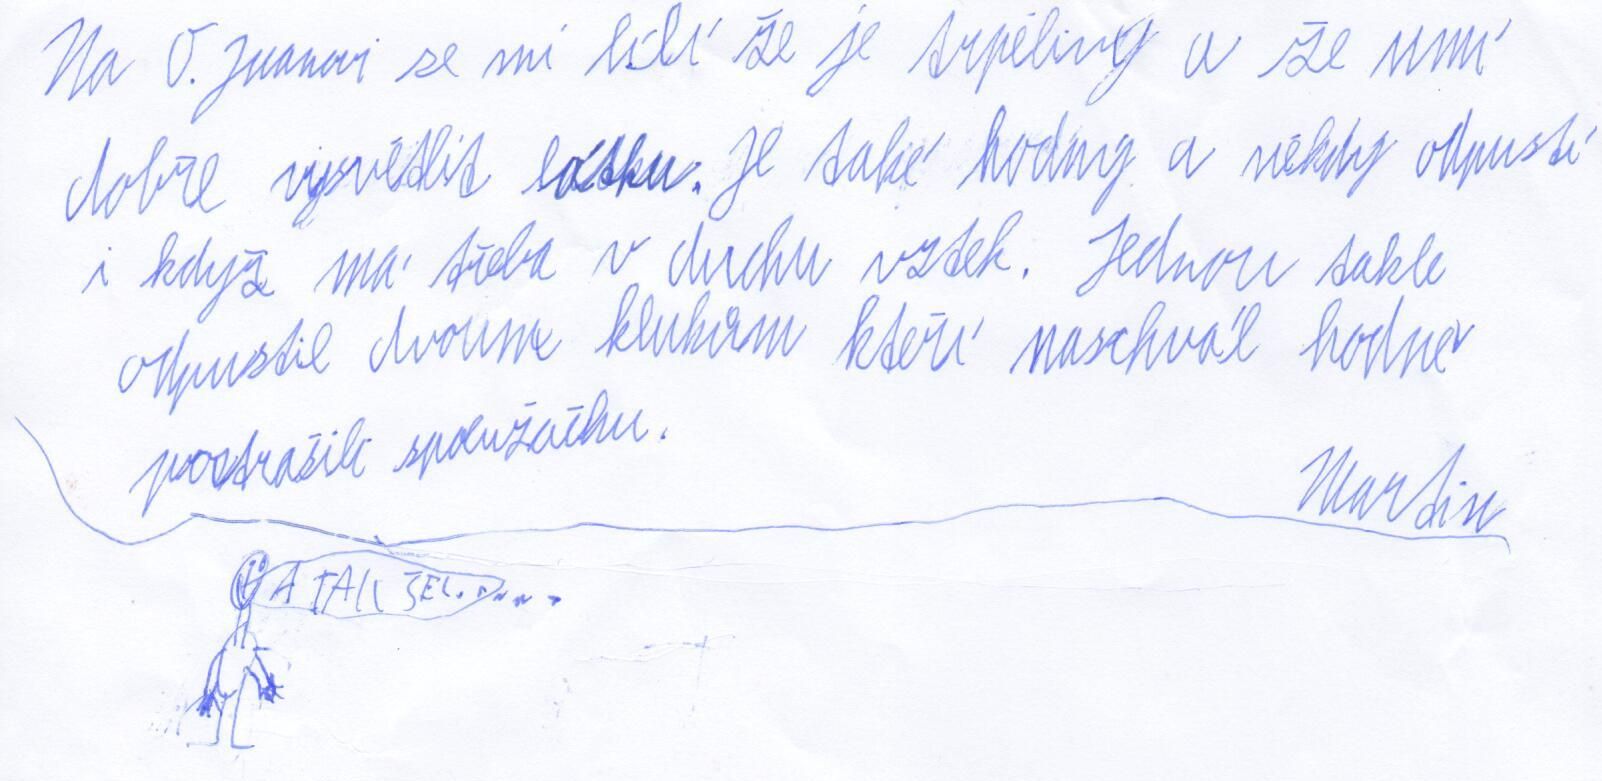 Na O. Juanovi se mi líbí že je trpělivý a že umí
dobře vysvětlit látku. Je také hodný a někdy odpustí
i když má třeba v duchu vztek. Jednou takle
odpustil dvoum klukům kteří naschvál hodně
postrašili spolužačku.
Martin
A TAK ŠEL.......